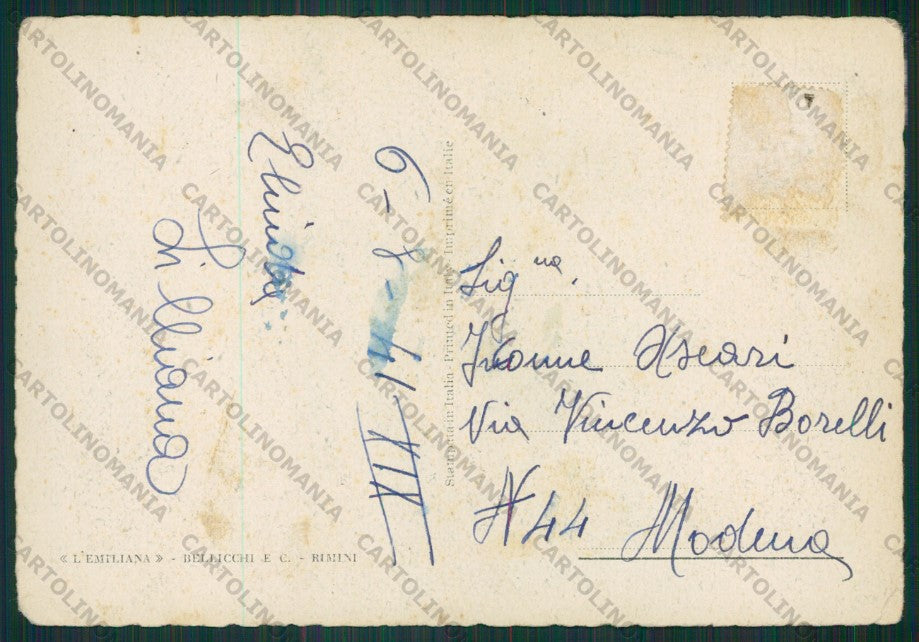 6-8-41 XIX
Lilliana
Sig.na
Ivonne Ascari
Via Vincenzo Borelli
N 44 Modena
Stampata in Italia - Printed in Italy - Imprimé en Italie
« L'EMILIANA » - BELLICCHI E C. - RIMINI
CARTOLINOMANIA